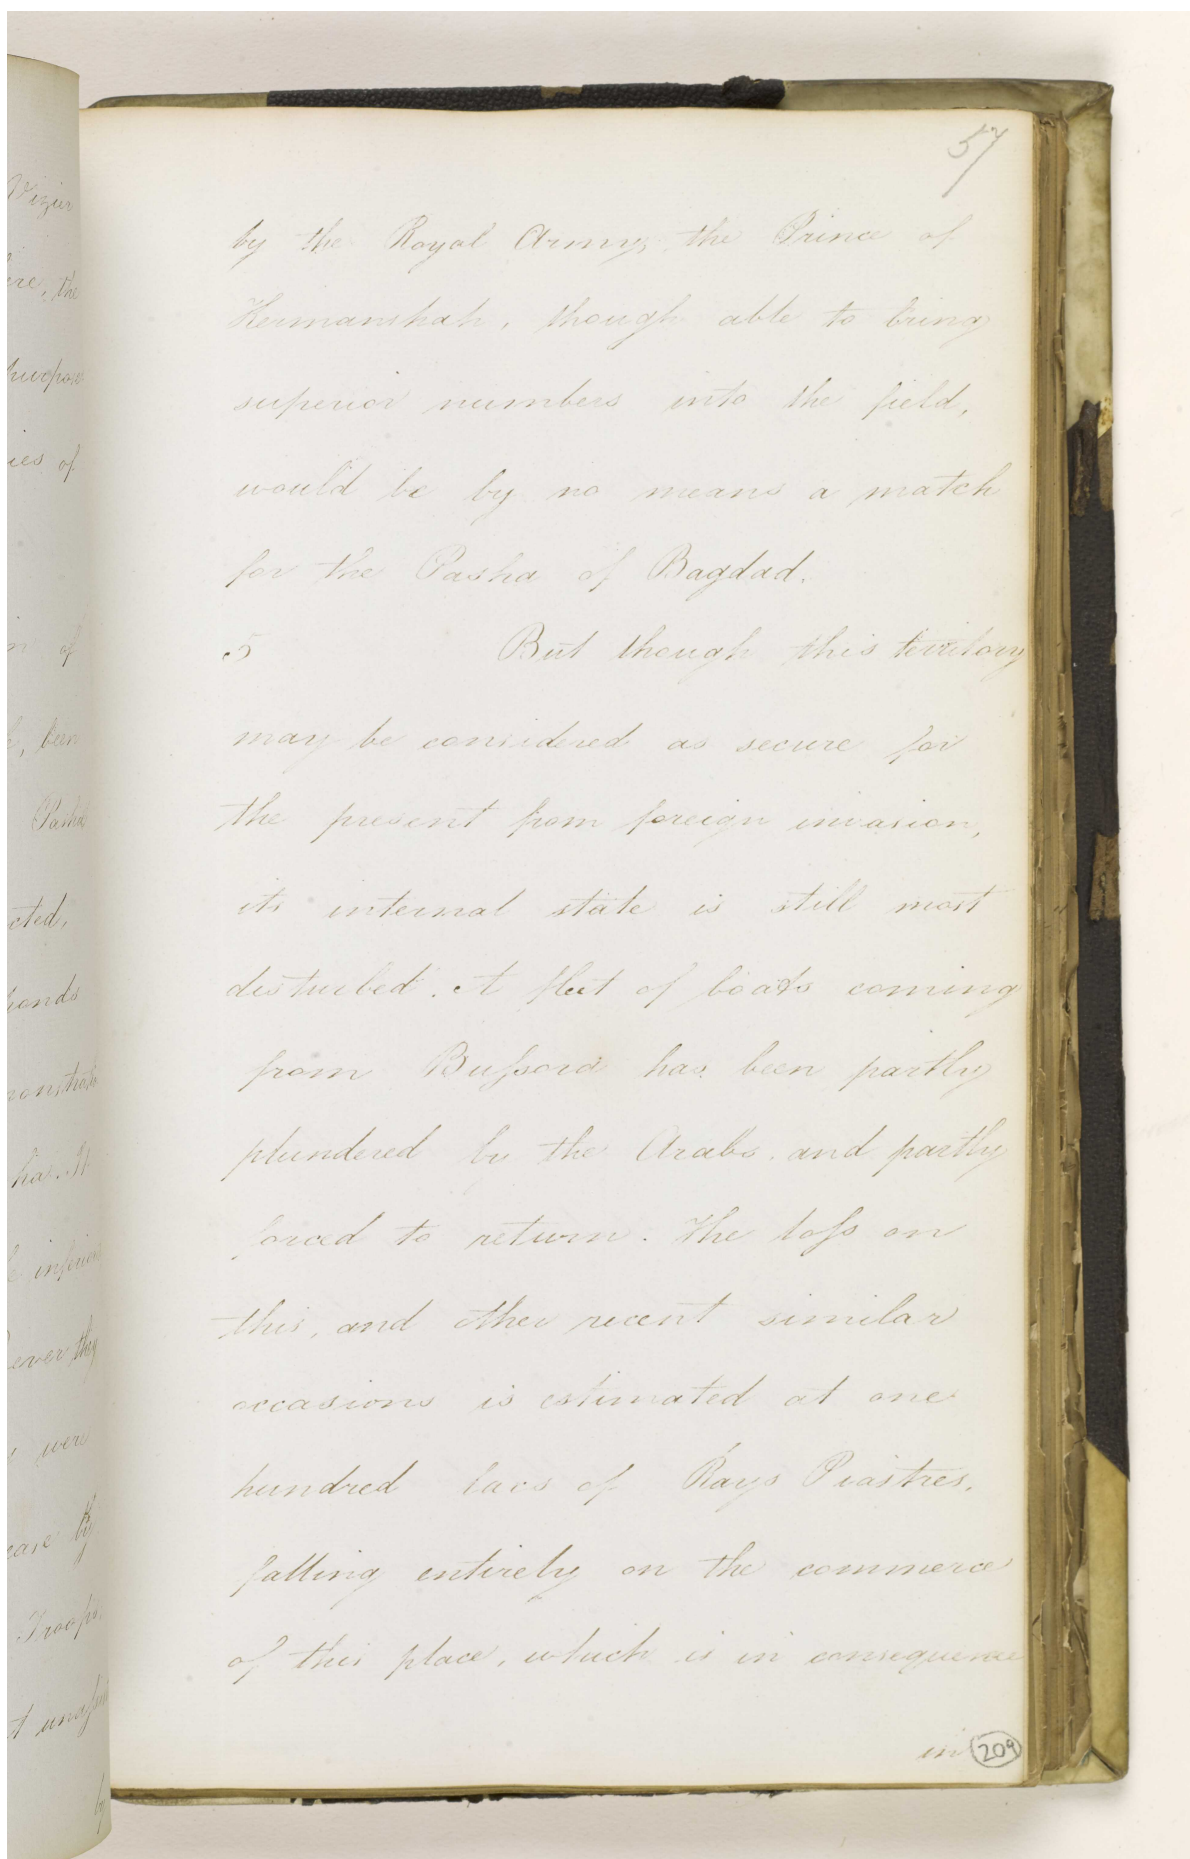 57
by the Royal Army, the Prince of
Kermanshah, though able to bring
superior numbers into the field,
would be by no means a match
for the Pasha of Bagdad.
5 But though this territory
may be considered as secure for
the present from foreign invasion,
its internal state is still most
disturbed. A fleet of boats coming
from Bussora has been partly
plundered by the Arabs, and partly
forced to return. The loss on
this, and other recent similar
occasions is estimated at one
hundred lacs of Rays Piastres,
falling entirely on the commerce
of this place, which is in consequence
in
209
Vizier
the
of
of
been
Pasha
were
by
Troops
by